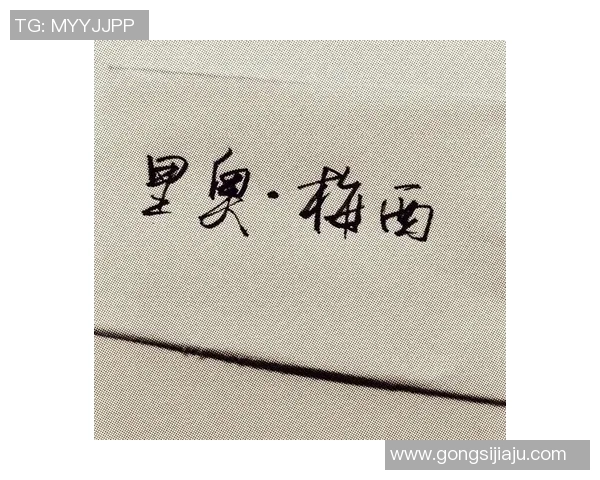 TG: MYYJJPP
里奥·梅西
www.gongsijiaju.com